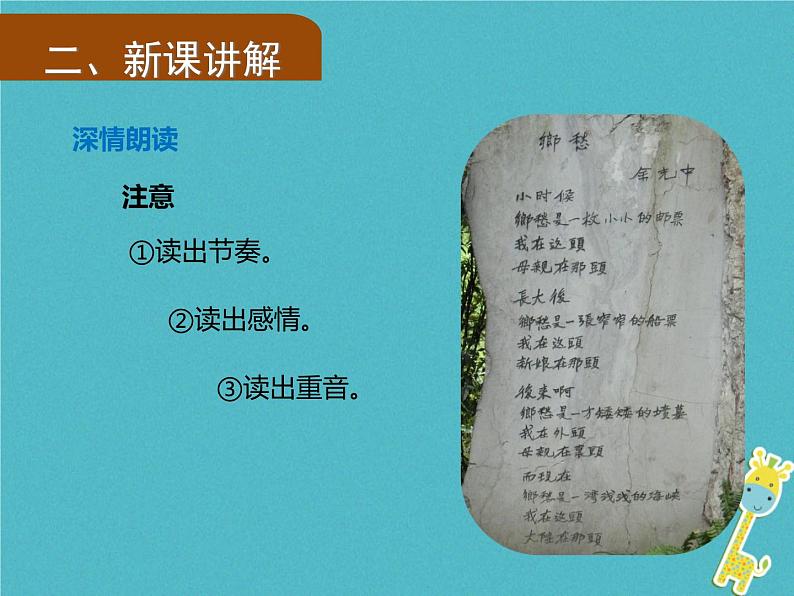 二、新课讲解
深情朗读
注意
①读出节奏。
②读出感情。
③读出重音。
鄉愁
余光中
小时候
鄉愁是一枚小小的邮票
我在这頭
母親在那頭
長大後
鄉愁是一張窄窄的船票
我在这頭
新娘在那頭
後來啊
鄉愁是一方矮矮的墳墓
我在外頭
母親在裏頭
而現在
鄉愁是一湾浅浅的海峡
我在这頭
大陸在那頭